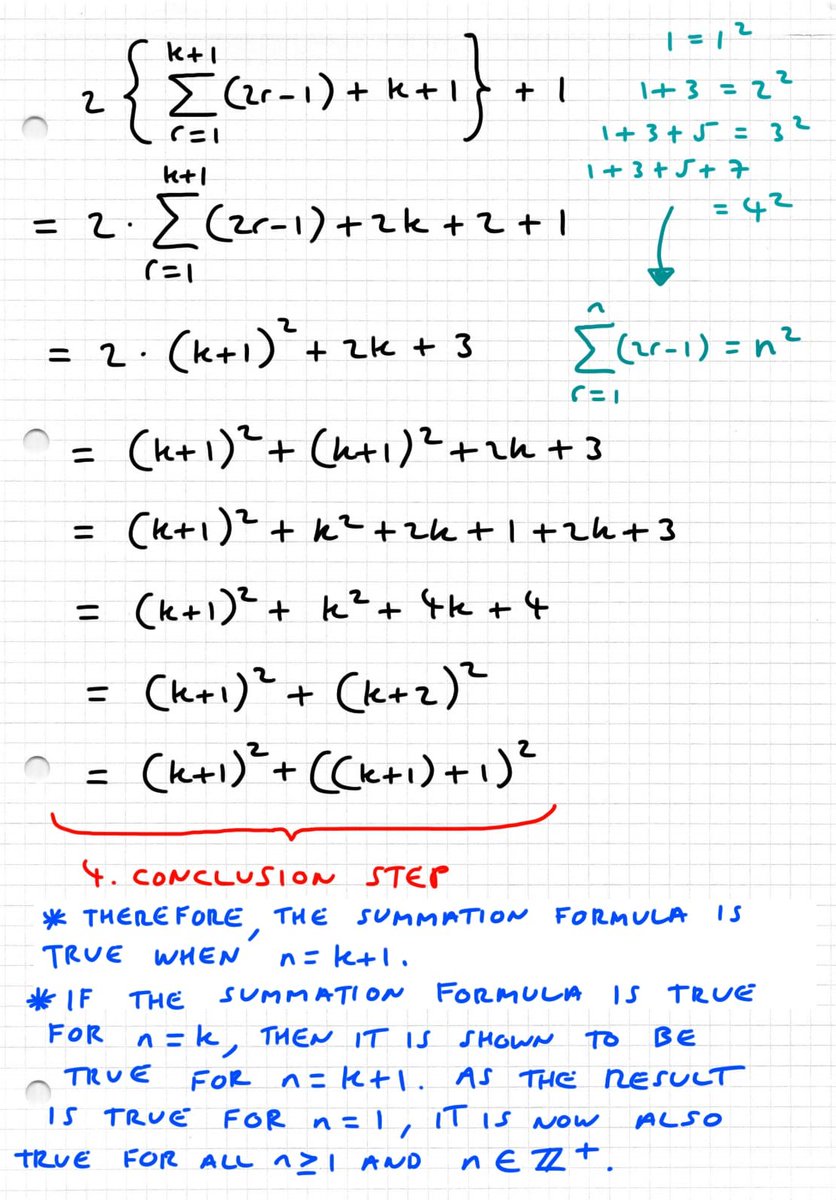 2 { ∑_{r=1}^{k+1} (2r-1) + k+1 } + 1
= 2 · ∑_{r=1}^{k+1} (2r-1) + 2k + 2 + 1
= 2 · (k+1)² + 2k + 3
= (k+1)² + (k+1)² + 2k + 3
= (k+1)² + k² + 2k + 1 + 2k + 3
= (k+1)² + k² + 4k + 4
= (k+1)² + (k+2)²
= (k+1)² + ((k+1)+1)²
1 = 1²
1+3 = 2²
1+3+5 = 3²
1+3+5+7
= 4²
∑_{r=1}^{n} (2r-1) = n²
4. CONCLUSION STEP
* THEREFORE, THE SUMMATION FORMULA IS
TRUE WHEN n=k+1.
* IF THE SUMMATION FORMULA IS TRUE
FOR n=k, THEN IT IS SHOWN TO BE
TRUE FOR n=k+1. AS THE RESULT
IS TRUE FOR n=1, IT IS NOW ALSO
TRUE FOR ALL n≥1 AND n∈ℤ⁺.